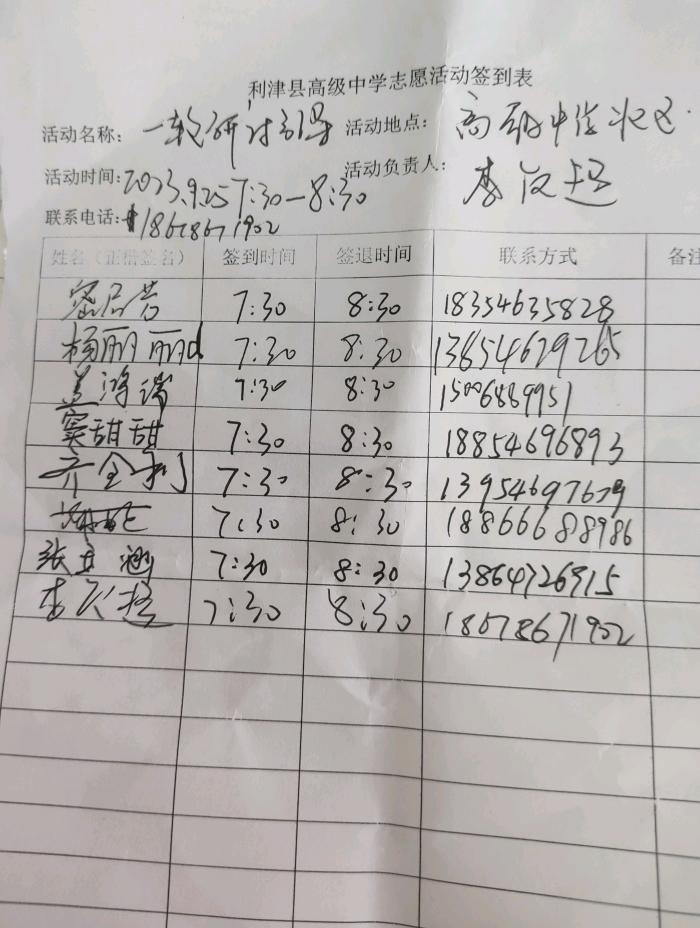 利津县高级中学志愿活动签到表
活动名称: 一轮研讨 活动地点: 高级中学
活动时间: 2023.9.25 7:30-8:30 活动负责人:
联系电话:
姓名（正楷签名） 签到时间 签退时间 联系方式 备注
7:30 8:30 18354635828
杨丽丽 7:30 8:30 13654629265
盖鸿瑞 7:30 8:30 15006889951
窦甜甜 7:30 8:30 18854696893
齐全利 7:30 8:30 13954697679
7:30 8:30 18866688986
张立 7:30 8:30 13864726915
7:30 8:30 18678671902